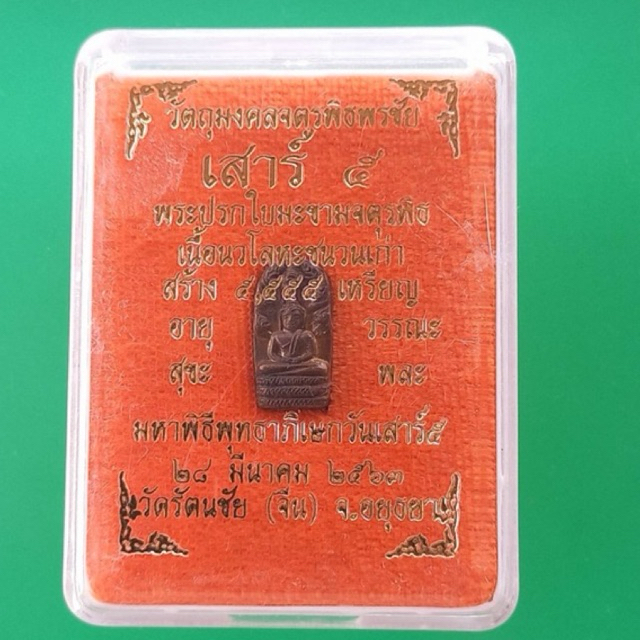 วัตถุมงคลจตุรพิธพรชัย
เสาร์ ๕
พระปรกใบมะขามจตุรพิธ
เนื้อนวโลหะชนวนเก่า
สร้าง ๕,๕๕๕ เหรียญ
อายุ วรรณะ
สุขะ พละ
มหาพิธีพุทธาภิเษกวันเสาร์๕
๒๘ มีนาคม ๒๕๖๓
วัดรัตนชัย (จีน) จ.อยุธยา